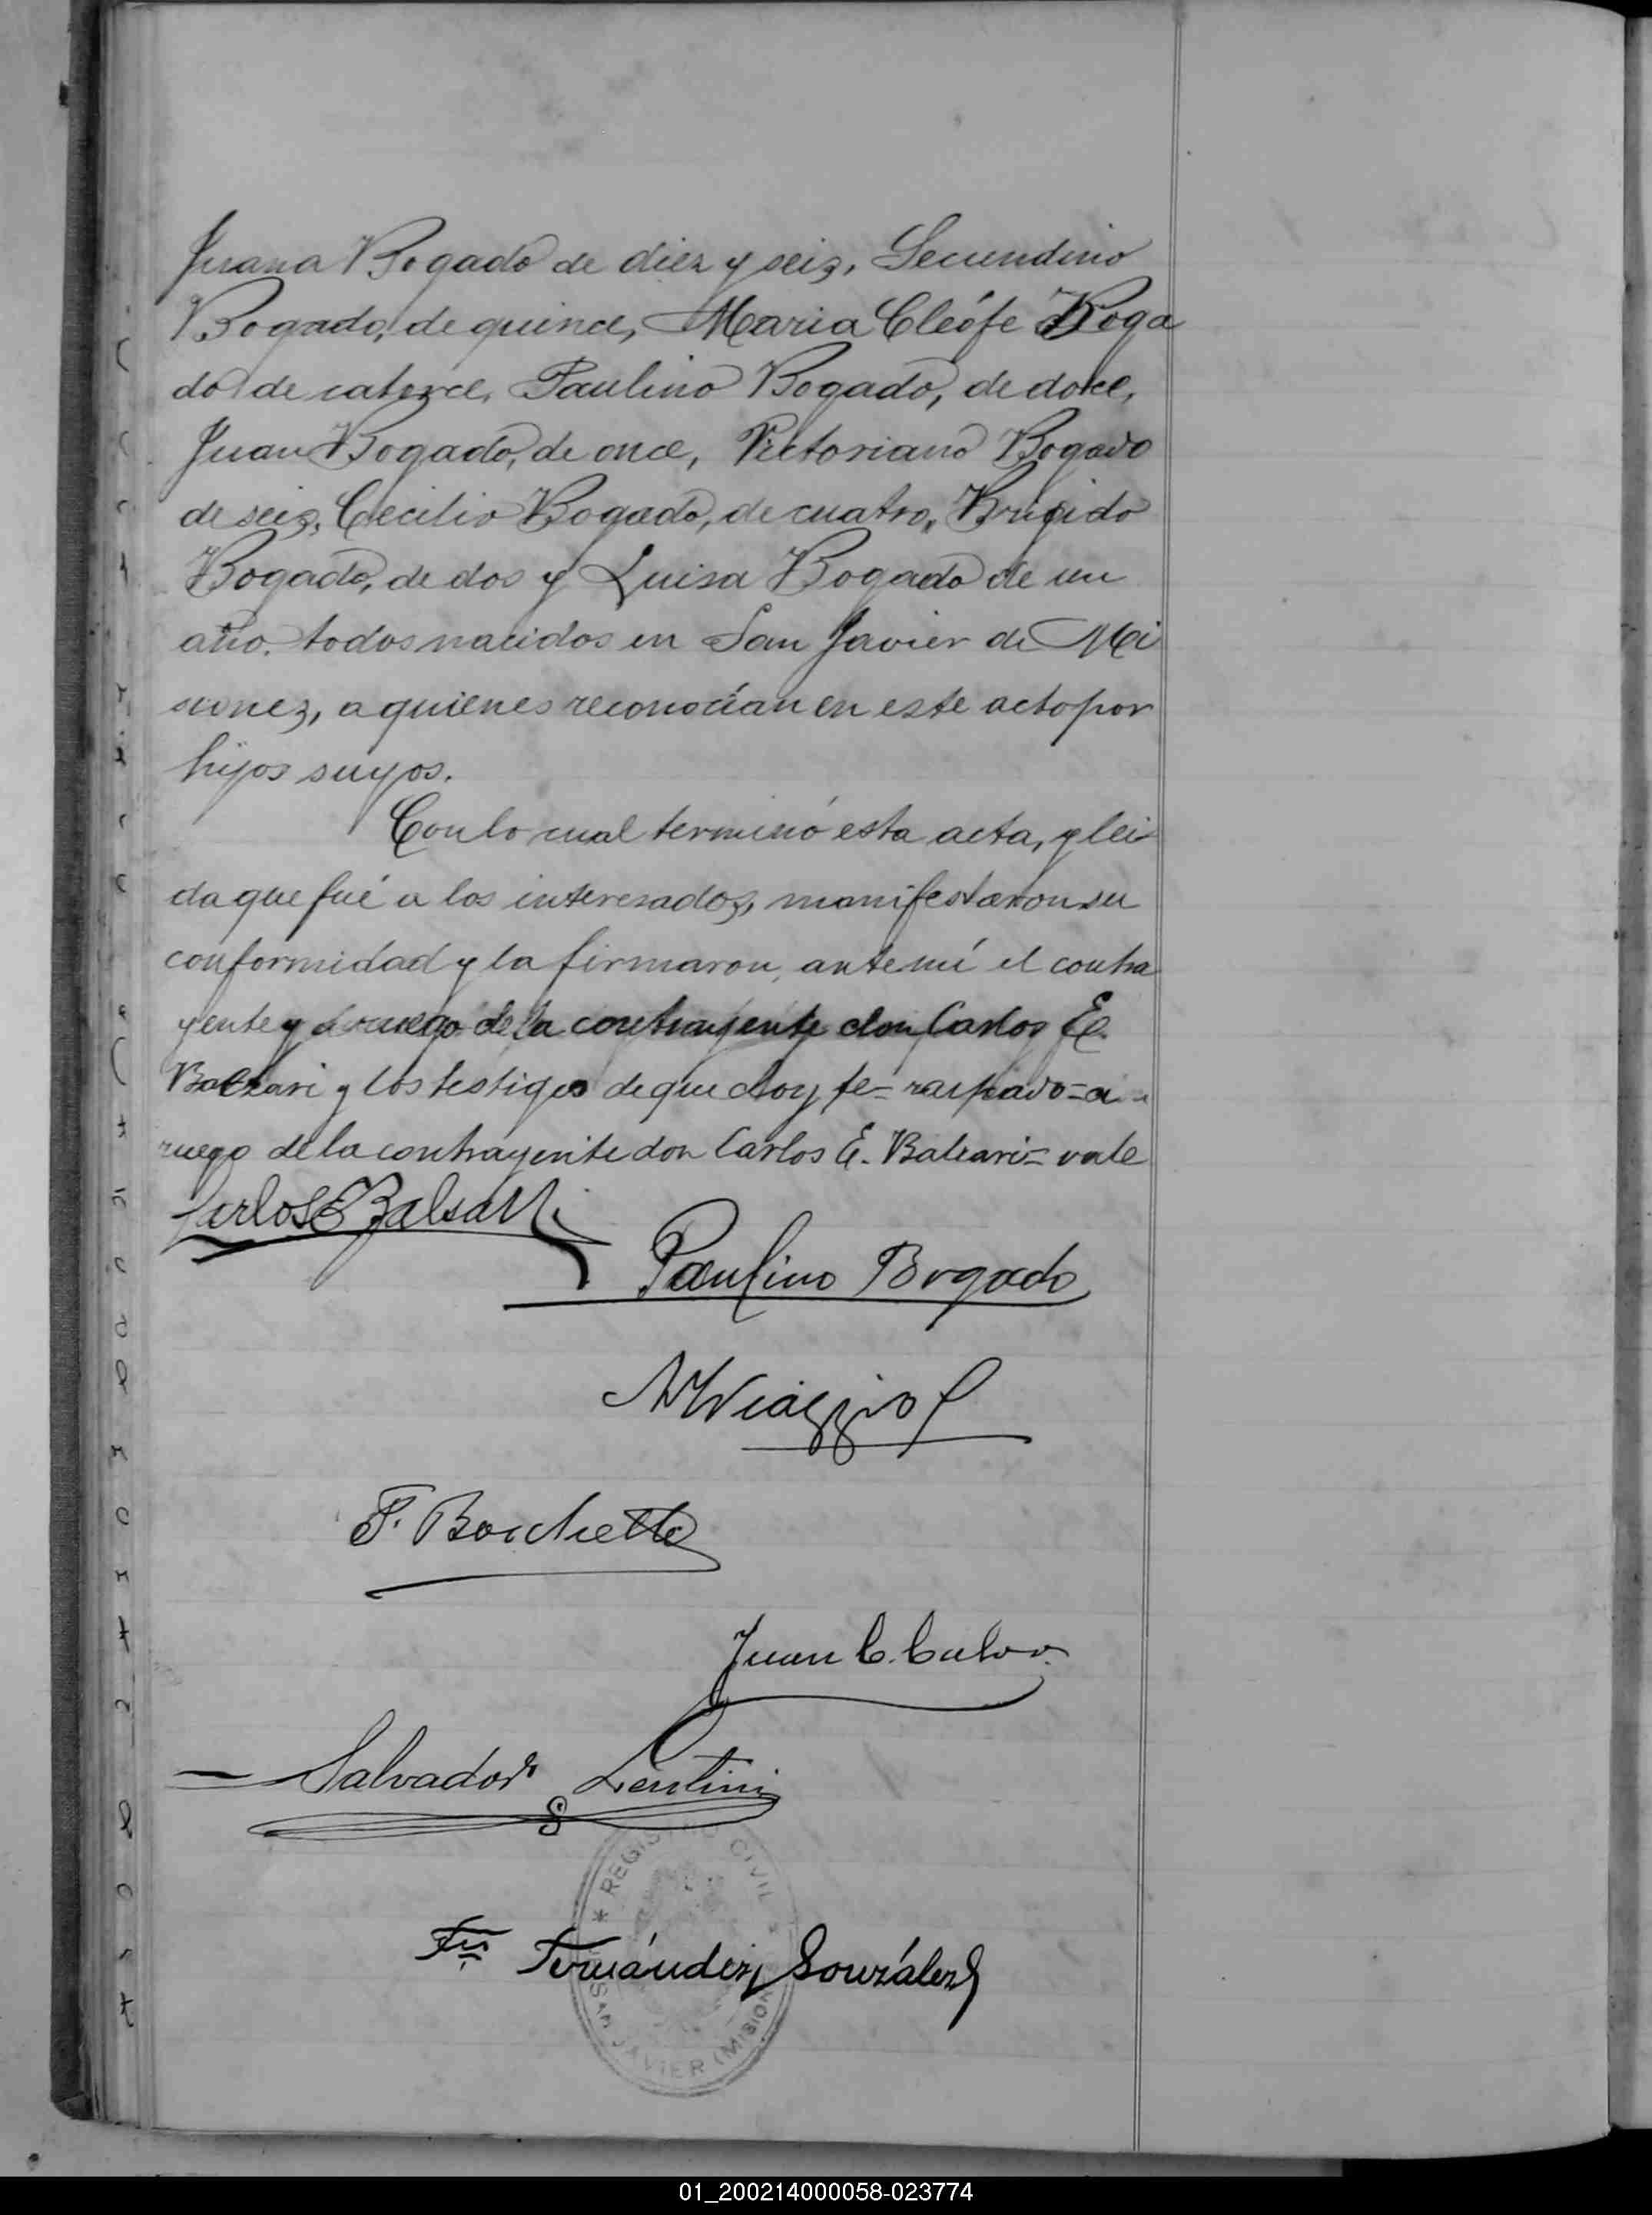 Juana Bogado de diez y seis, Secundino
Bogado, de quince, Maria Cleófe Boga
do de catorce, Paulino Bogado, de doce,
Juan Bogado, de once, Victoriano Bogado
de seis, Cecilio Bogado, de cuatro, Brigido
Bogado, de dos y Luisa Bogado de un
año. todos nacidos en San Javier de Mi
siones, a quienes reconocían en este acto por
hijos suyos.
Con lo cual terminó esta acta, y lei
da que fué a los interesados, manifestaron su
conformidad y la firmaron, ante mí el contra
yente y a ruego de la contrayente don Carlos E.
Balzari y los testigos de que doy fe = raspado = a
ruego de la contrayente don Carlos E. Balzari = vale
Carlos E Balsari
Paulino Bogado
F. Boichetto
Juan C. Calvo
Salvador Lentini
REGISTRO CIVIL
Fernández González
SAN JAVIER (MISIONES
01_200214000058-023774